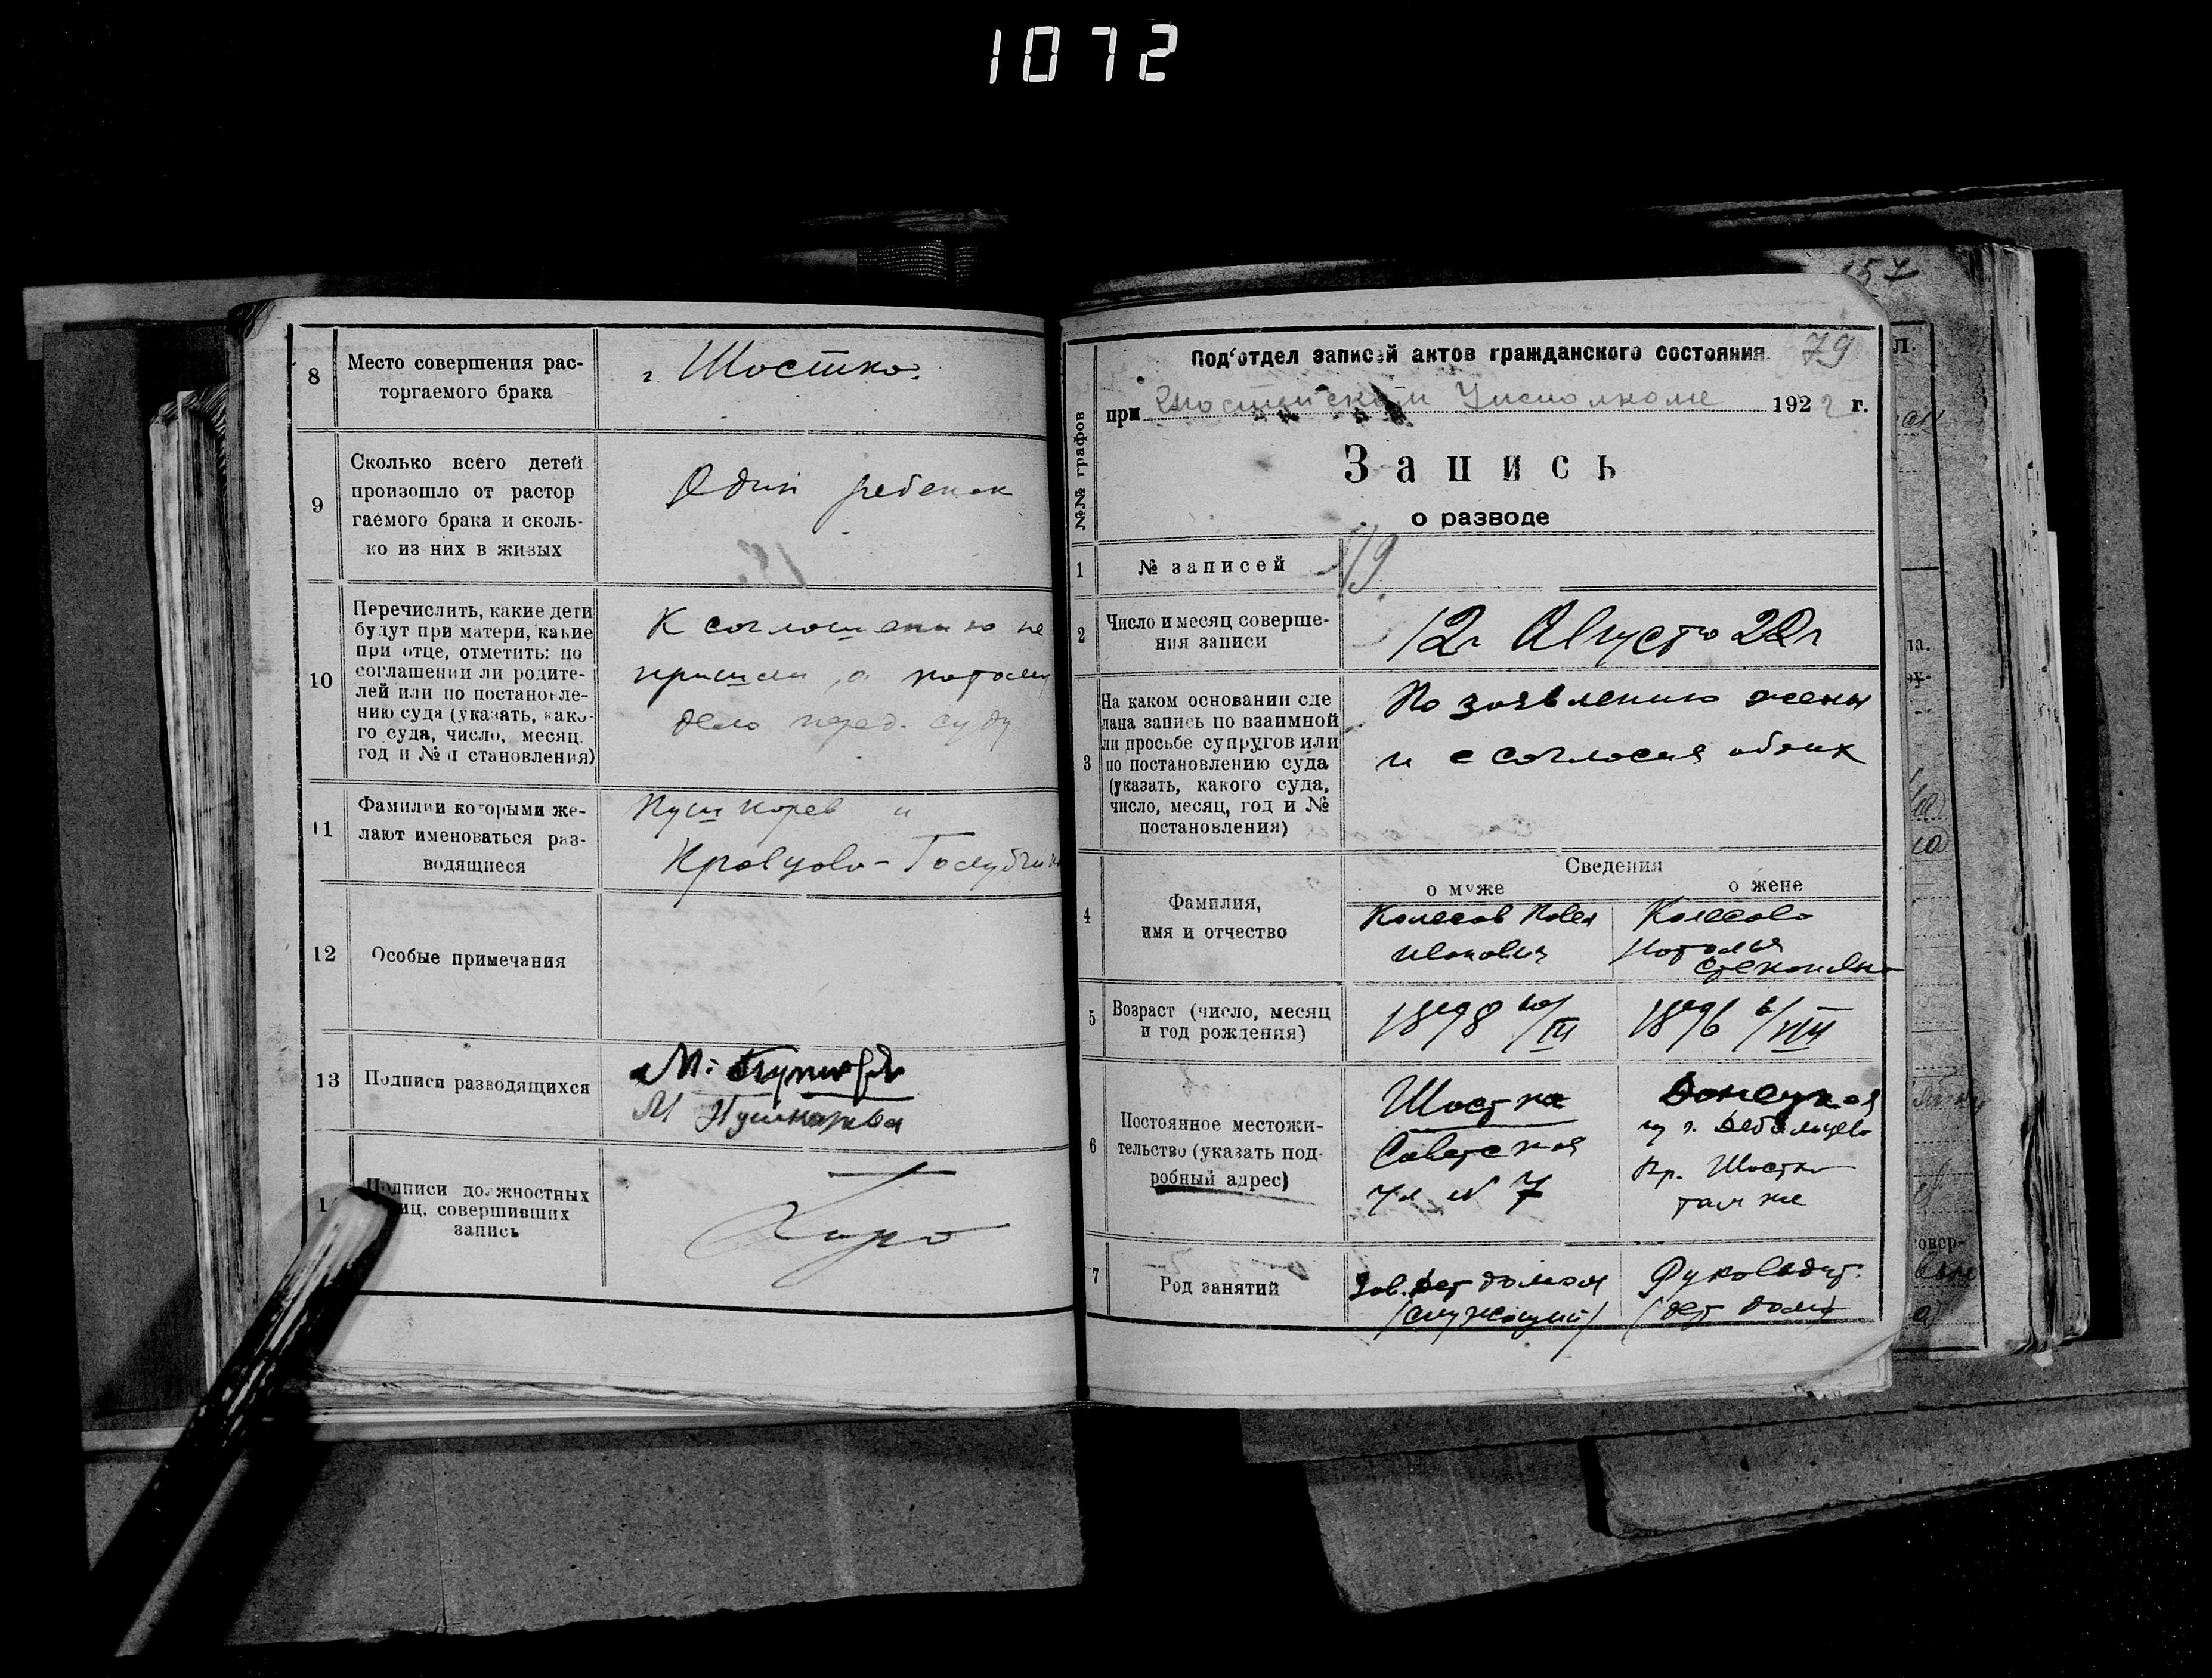 1072
8
Место совершения рас-
торгаемого брака
г Шостка.
9
Сколько всего детей
произошло от растор
гаемого брака и сколь-
ко из них в живых
Один ребенок
10
Перечислить, какие дети
будут при матери, какие
при отце, отметить: по
соглашении ли родите-
лей или по постановле-
нию суда (указать, како-
го суда, число, месяц
год и № п становления)
К соглашению не
пришли, а потому
дело перед. суду
11
Фамилии которыми же-
лают именоваться раз-
водящиеся
Пушкарев и
Кравцова-
12
Особые примечания
13
Подписи разводящихся
М. Пушкарев
М Пушкарева
1
Подписи должностных
лиц, совершивших
запись
157
№№ графов
Под'отдел записей актов гражданского состояния
79
при Шостенском Уисполкоме 1922 г.
Запись
о разводе
1
№ записей
19.
2
Число и месяц соверше-
ния записи
12г Августа 22г
3
На каком основании сде
лана запись по взаимной
ли просьбе супругов или
по постановлению суда
(указать, какого суда,
число, месяц, год и №
постановления)
По заявлению жены
и с согласия обоих
4
Фамилия,
имя и отчество
Сведения
о муже
о жене
Колесов Павел
Иванович
Колесова
Наталья
Степановна
5
Возраст (число, месяц
и год рождения)
1898 10/III
1896 6/VIII
6
Постоянное местожи-
тельство (указать под-
робный адрес)
Шостка
Советская
ул № 7
Донецкая
г. Дебальцево
Пр. Шостка
там же
7
Род занятий
Зав. Дет домом
(служащий)
Руководит.
(дет дома)